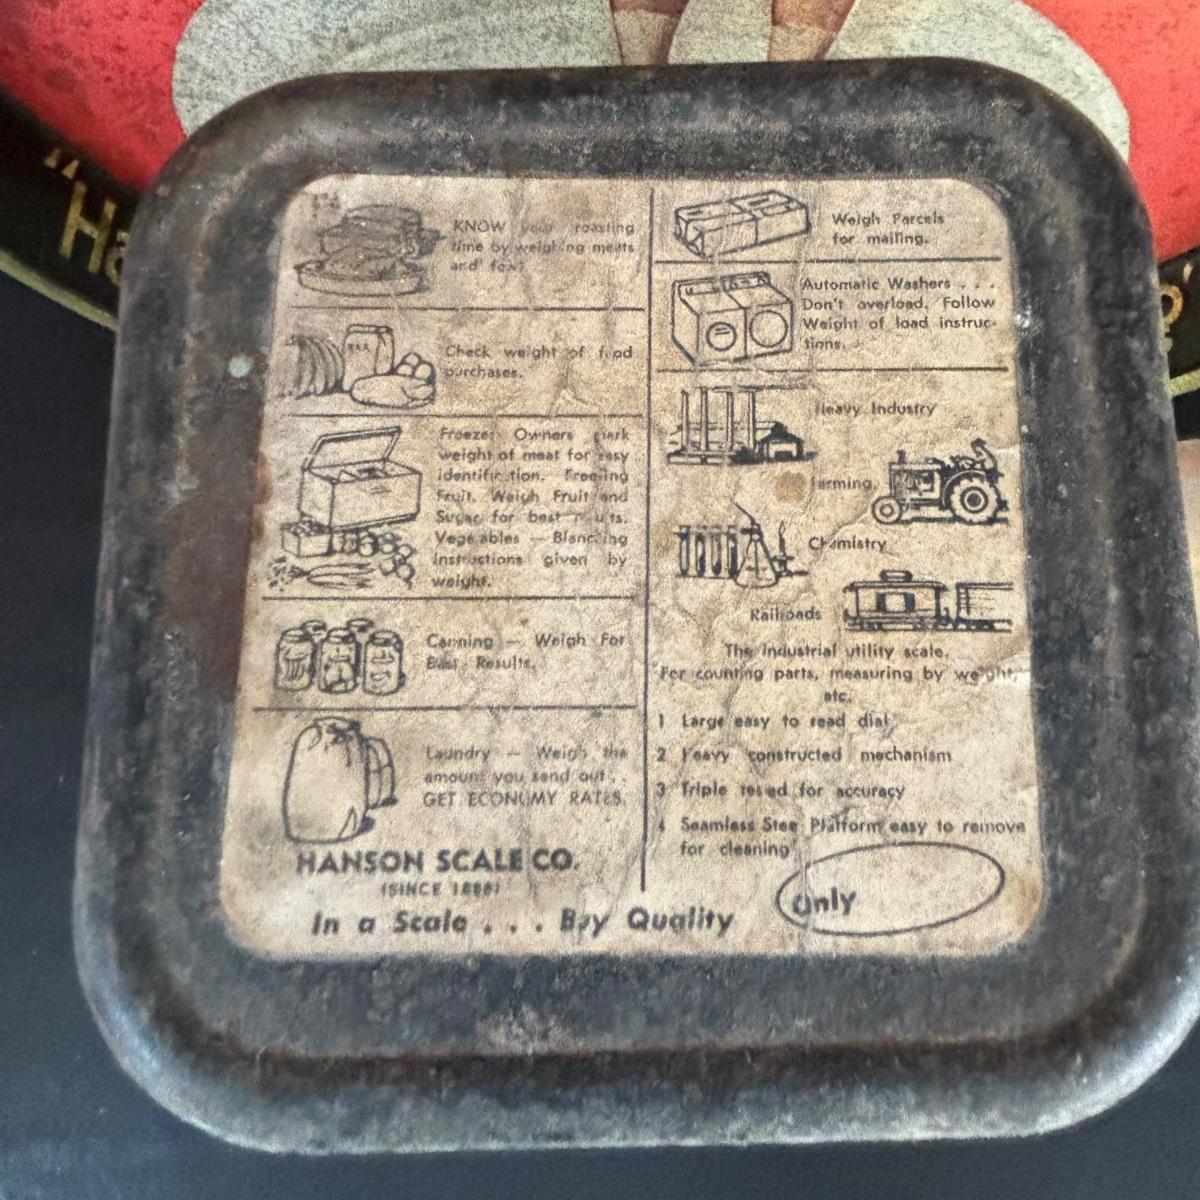 "Ha
KNOW your roasting
time by weighing meats
and fowl
Check weight of food
purchases.
Freezer Owners mark
weight of meat for easy
identification. Freezing
Fruit. Weigh Fruit and
Sugar for best results.
Vegetables — Blanching
instructions given by
weight.
Canning — Weigh For
Best Results.
Laundry — Weigh the
amount you send out . .
GET ECONOMY RATES.
HANSON SCALE CO.
(SINCE 1888)
In a Scale . . . Buy Quality
Weigh Parcels
for mailing.
Automatic Washers . . .
Don't overload. Follow
Weight of load instruc-
tions.
Heavy Industry
Farming.
Chemistry
Railroads
The Industrial utility scale.
For counting parts, measuring by weight,
etc.
1 Large easy to read dial
2 Heavy constructed mechanism
3 Triple tested for accuracy
4 Seamless Steel Platform easy to remove
for cleaning
Only